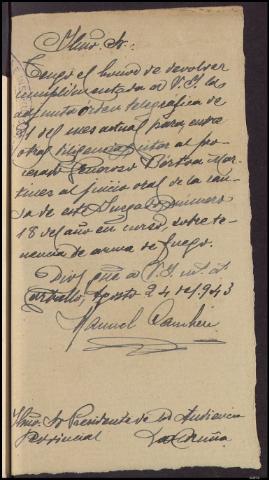 Ilmo. Sr.:
Tengo el honor de devolver
cumplimentada a V.I. la
adjunta órden telegráfica de
21 del mes actual para entre
otras diligencias citar al pro-
cesado Generoso Mar-
tines al juicio oral de la cau-
sa de este Juzgado número
18 del año en curso, sobre te-
nencia de arma de fuego.
Dios gue a V.I. m. a.
Carballo, Agosto 24 de 1.943
Manuel
Ilmo. Sr Presidente de la Audiencia
Provincial La Coruña.